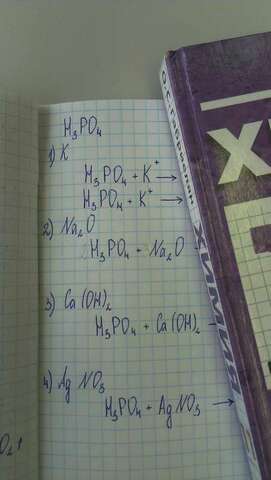 H₃PO₄
1) K
H₃PO₄ + K⁺ →
H₃PO₄ + K⁺ →
2) Na₂O
H₃PO₄ + Na₂O
3) Ca(OH)₂
H₃PO₄ + Ca(OH)₂
4) Ag NO₃
H₃PO₄ + Ag NO₃ →
О.С. Габриелян
ХИМИЯ